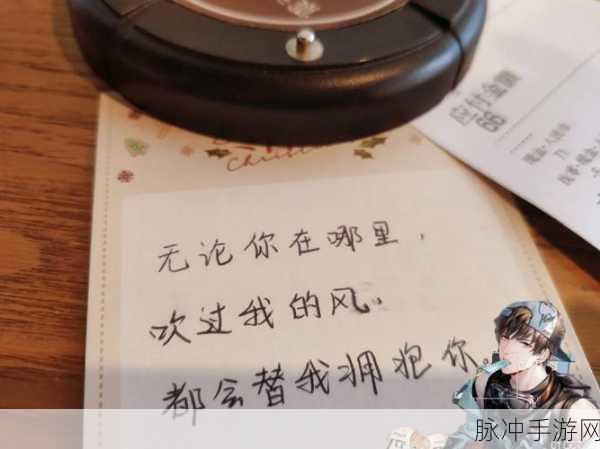 Christmas
应付金额
68
无论你在哪里，
吹过我的风，
都会替我拥抱你。
脉冲手游网